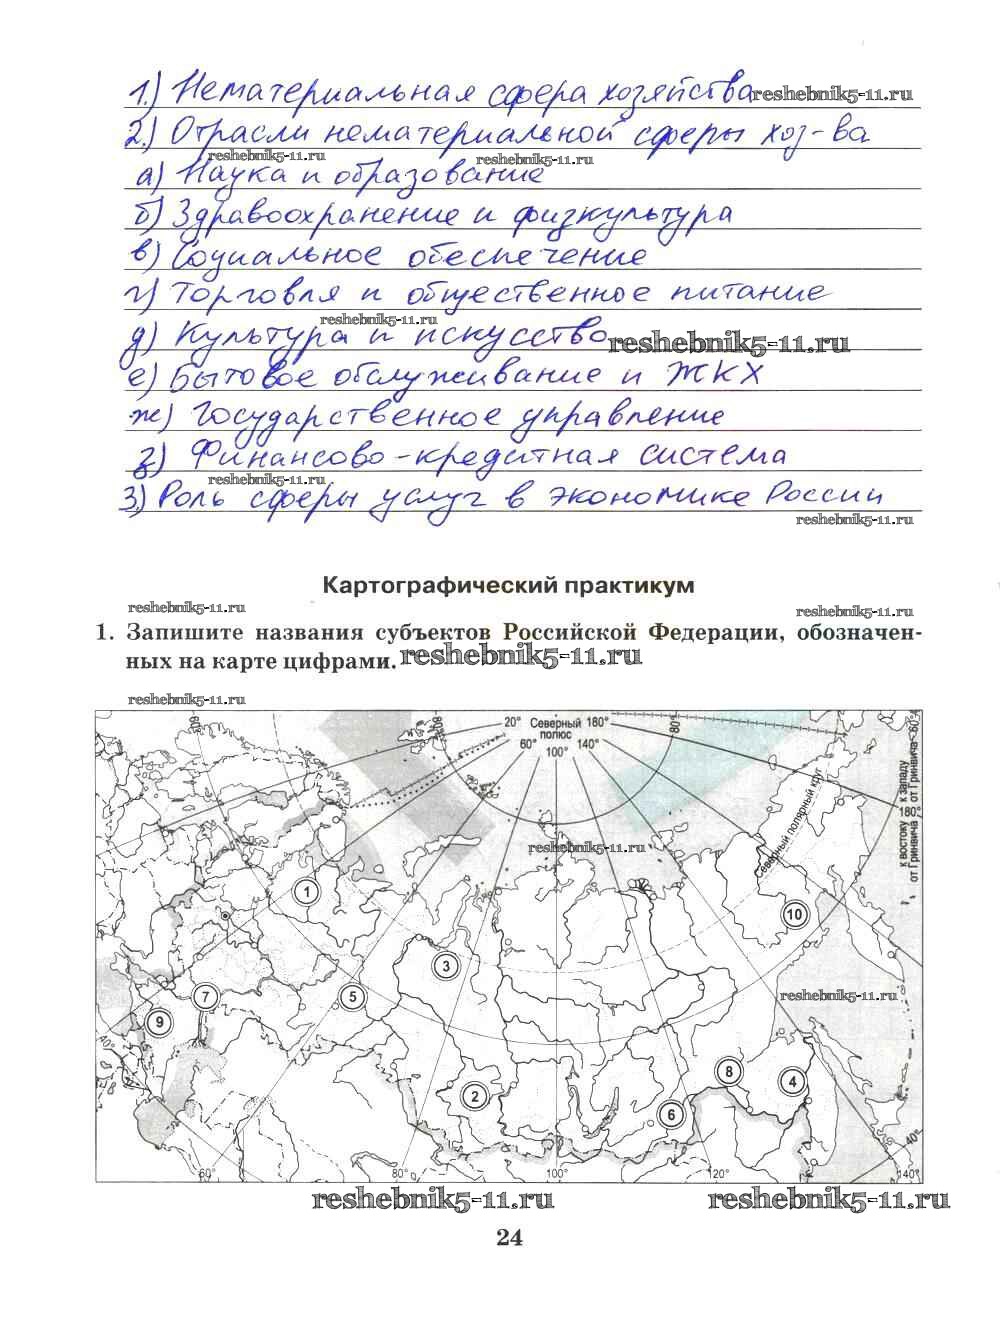 1.) Нематериальная сфера хозяйства reshebnik5-11.ru
2.) Отрасли нематериальной сферы хоз-ва
reshebnik5-11.ru reshebnik5-11.ru
а) Наука и образование
б) Здравоохранение и физкультура
в) Социальное обеспечение
г) Торговля и общественное питание
reshebnik5-11.ru
д) Культура и искусство reshebnik5-11.ru
е) Бытовое обслуживание и ЖКХ
ж) Государственное управление
з) Финансово-кредитная система
reshebnik5-11.ru
3.) Роль сферы услуг в экономике России
reshebnik5-11.ru
Картографический практикум
reshebnik5-11.ru reshebnik5-11.ru
1. Запишите названия субъектов Российской Федерации, обозначен-
ных на карте цифрами. reshebnik5-11.ru
reshebnik5-11.ru
20° Северный 180°
полюс
60° 100° 140°
80°
60°
к востоку к западу
от Гринвича от Гринвича
180°
Северный полярный круг
reshebnik5-11.ru
1
10
3
5
7
9
reshebnik5-11.ru
8
4
2
6
40°
40°
60° 80° 100° 120° 140°
reshebnik5-11.ru reshebnik5-11.ru
24